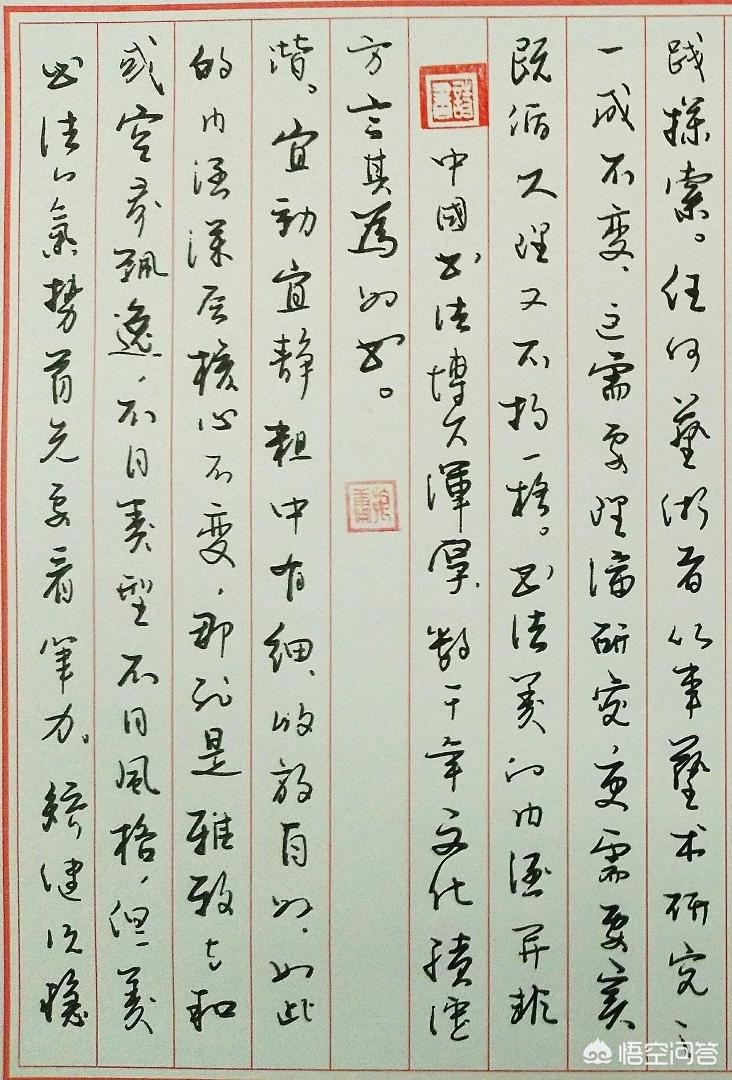 书法的氣势首先要看筆力。矫健沉稳
或空灵飘逸，不同类型不同风格，但美
的内涵深层核心不变，那就是雅致与和
谐。宜动宜静粗中有细、收放自如，如此
方言其為好书。
中國书法博大渾厚、数千年文化積淀
既循天理又不拘一格。书法美的内涵并非
一成不变、这需要理论研究更需要实
践探索。任何藝術者从事藝术研究
悟空问答